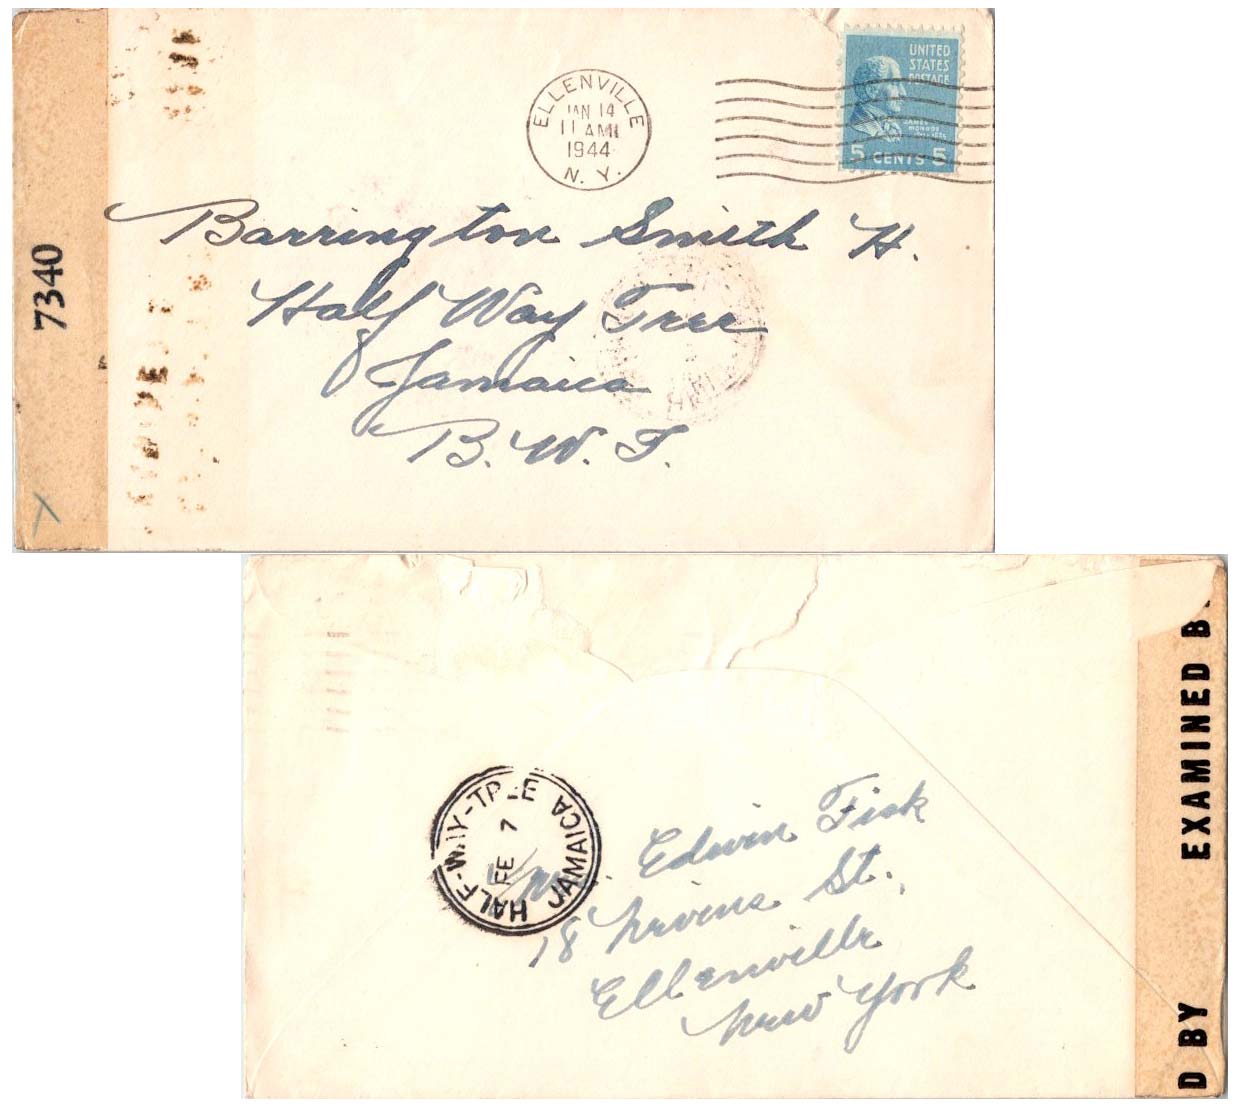 7340
ELLENVILLE
JAN 14
11 AM
1944
N. Y.
UNITED
STATES
POSTAGE
JAMES
MONROE
5 CENTS 5
Barrington Smith H.
Half Way Tree
Jamaica
B. W. I.
EXAMINED B
D BY
HALF-WAY-TREE
FE 7
JAMAICA
Edwin Fisk
18 Nevins St.,
Ellenville
New York